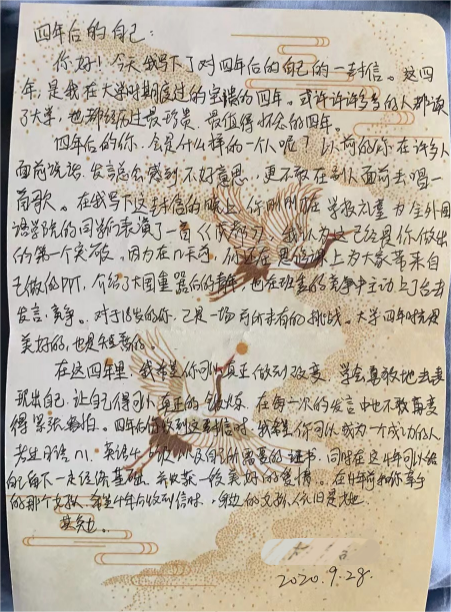 四年后的自己:
你好!今天我写下了对四年后的自己的一封信。这四
年,是我在大学时期度过的宝贵的四年。或许许许多多的人都读
了大学,也都经历过最珍贵、最值得怀念的四年。
四年后的你,会是什么样的一个人呢?以前的你在许多人
面前说话、发言总会感到不好意思,更不敢在别人面前去唱一
首歌。在我写下这封信的晚上,你刚刚在学校礼堂为全外国
语学院的同学们表演了一首《成都》,我认为这已经是你做出
的第一个突破。因为在几天前,你还在思修课上为大家带来自
己做的PPT,介绍了大国重器后的青年,也在班委的竞争中主动上了台去
发言、竞争。对于18岁的你,已是一场前所未有的挑战。大学四年时光是
美好的,也是短暂的。
在这四年里,我希望你可以真正做到改变,学会勇敢地去表
现出自己,让自己得到真正的锻炼,在每一次的发言中也不敢再变
得紧张、害怕。四年后收到这封信时,我希望你可以成为一个成功的人
考过日语N1、英语4、6级以及自己所需要的证书,同时在这4年可以给
自己留下一定经济基础,并收获一段美好的爱情。在4年前和你牵手
的那个女孩,希望4年后收到信时,身边的女孩依旧是她
2020.9.28.